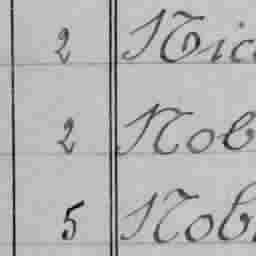 2 Nic
2 Nob
5 Nob